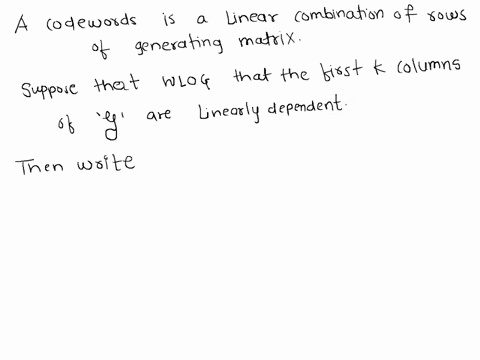 A codewords is a linear combination of rows
of generating matrix.
Suppose that WLOG that the first k columns
of 'g' are linearly dependent.
Then write